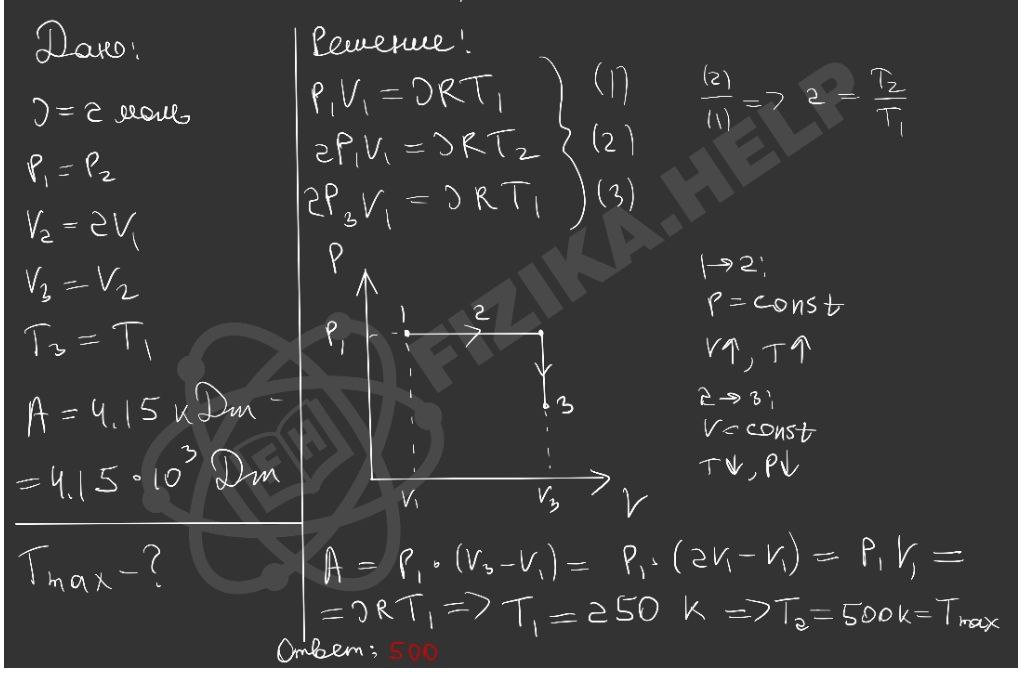 Дано:
ν = 2 моль
P₁ = P₂
V₂ = 2V₁
V₃ = V₂
T₃ = T₁
A = 4.15 кДж =
= 4.15 · 10³ Дж
Tmax – ?
Решение:
P₁V₁ = νRT₁ (1)
2P₁V₁ = νRT₂ (2)
2P₃V₁ = νRT₁ (3)
(2)/(1) => 2 = T₂/T₁
P
P₁
1
2
3
V₁
V₃
V
1→2:
P = const
V↑, T↑
2→3:
V = const
T↓, P↓
A = P₁ · (V₃ – V₁) = P₁ · (2V₁ – V₁) = P₁V₁ =
= νRT₁ => T₁ = 250 K => T₂ = 500K = Tmax
Ответ: 500
FIZIKA.HELP
FH